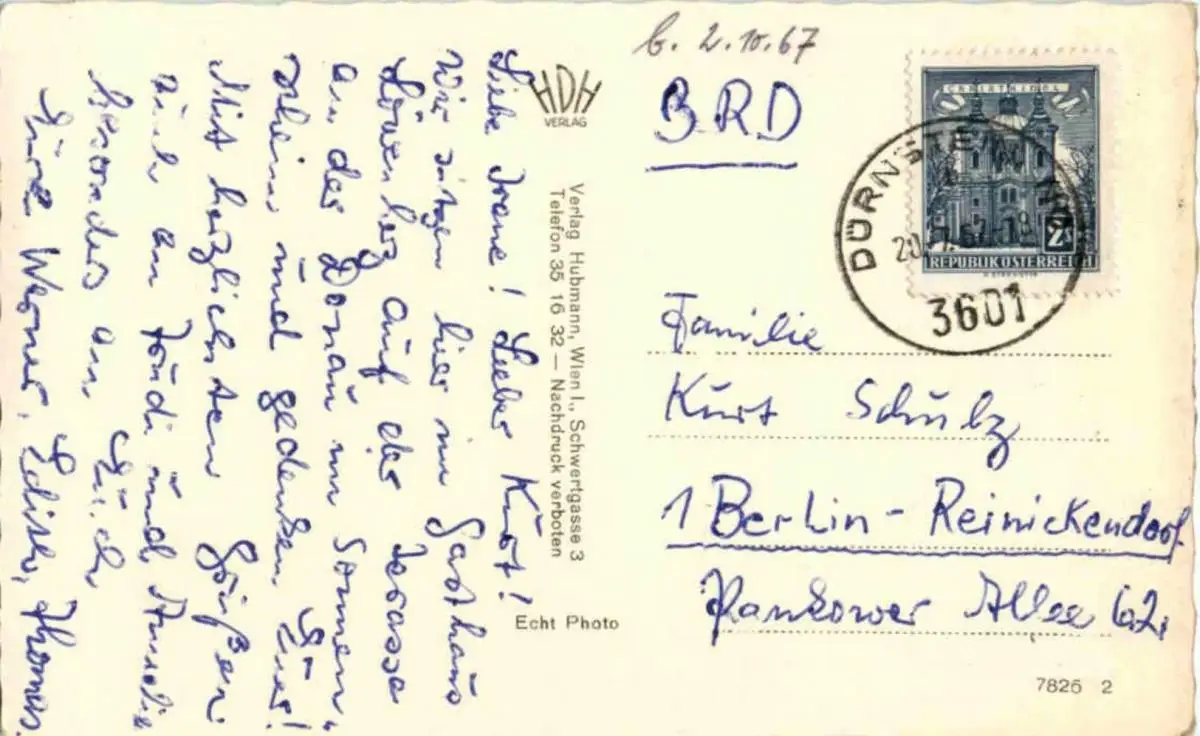 b. 2.10.67
BRD
Liebe Irene! Lieber Kurt!
Wir sitzen hier im Gasthaus
Löwenherz auf der Terasse
an der Donau im Sonnen„
schein und gedenken Euer!
Mit herzlichsten Grüßen
auch an und
besonders an Euch
Eure Werner, Edith, Thomas.
HDH
VERLAG
Verlag Hubmann, Wien I., Schwertgasse 3
Telefon 35 16 32 — Nachdruck verboten
Echt Photo
CHRISTKINDL
2S
REPUBLIK ÖSTERREICH
DÜRNSTEIN
3601
Familie
Kurt Schulz
1 Berlin - Reinickendorf
Pankower Allee 62.
7825 2